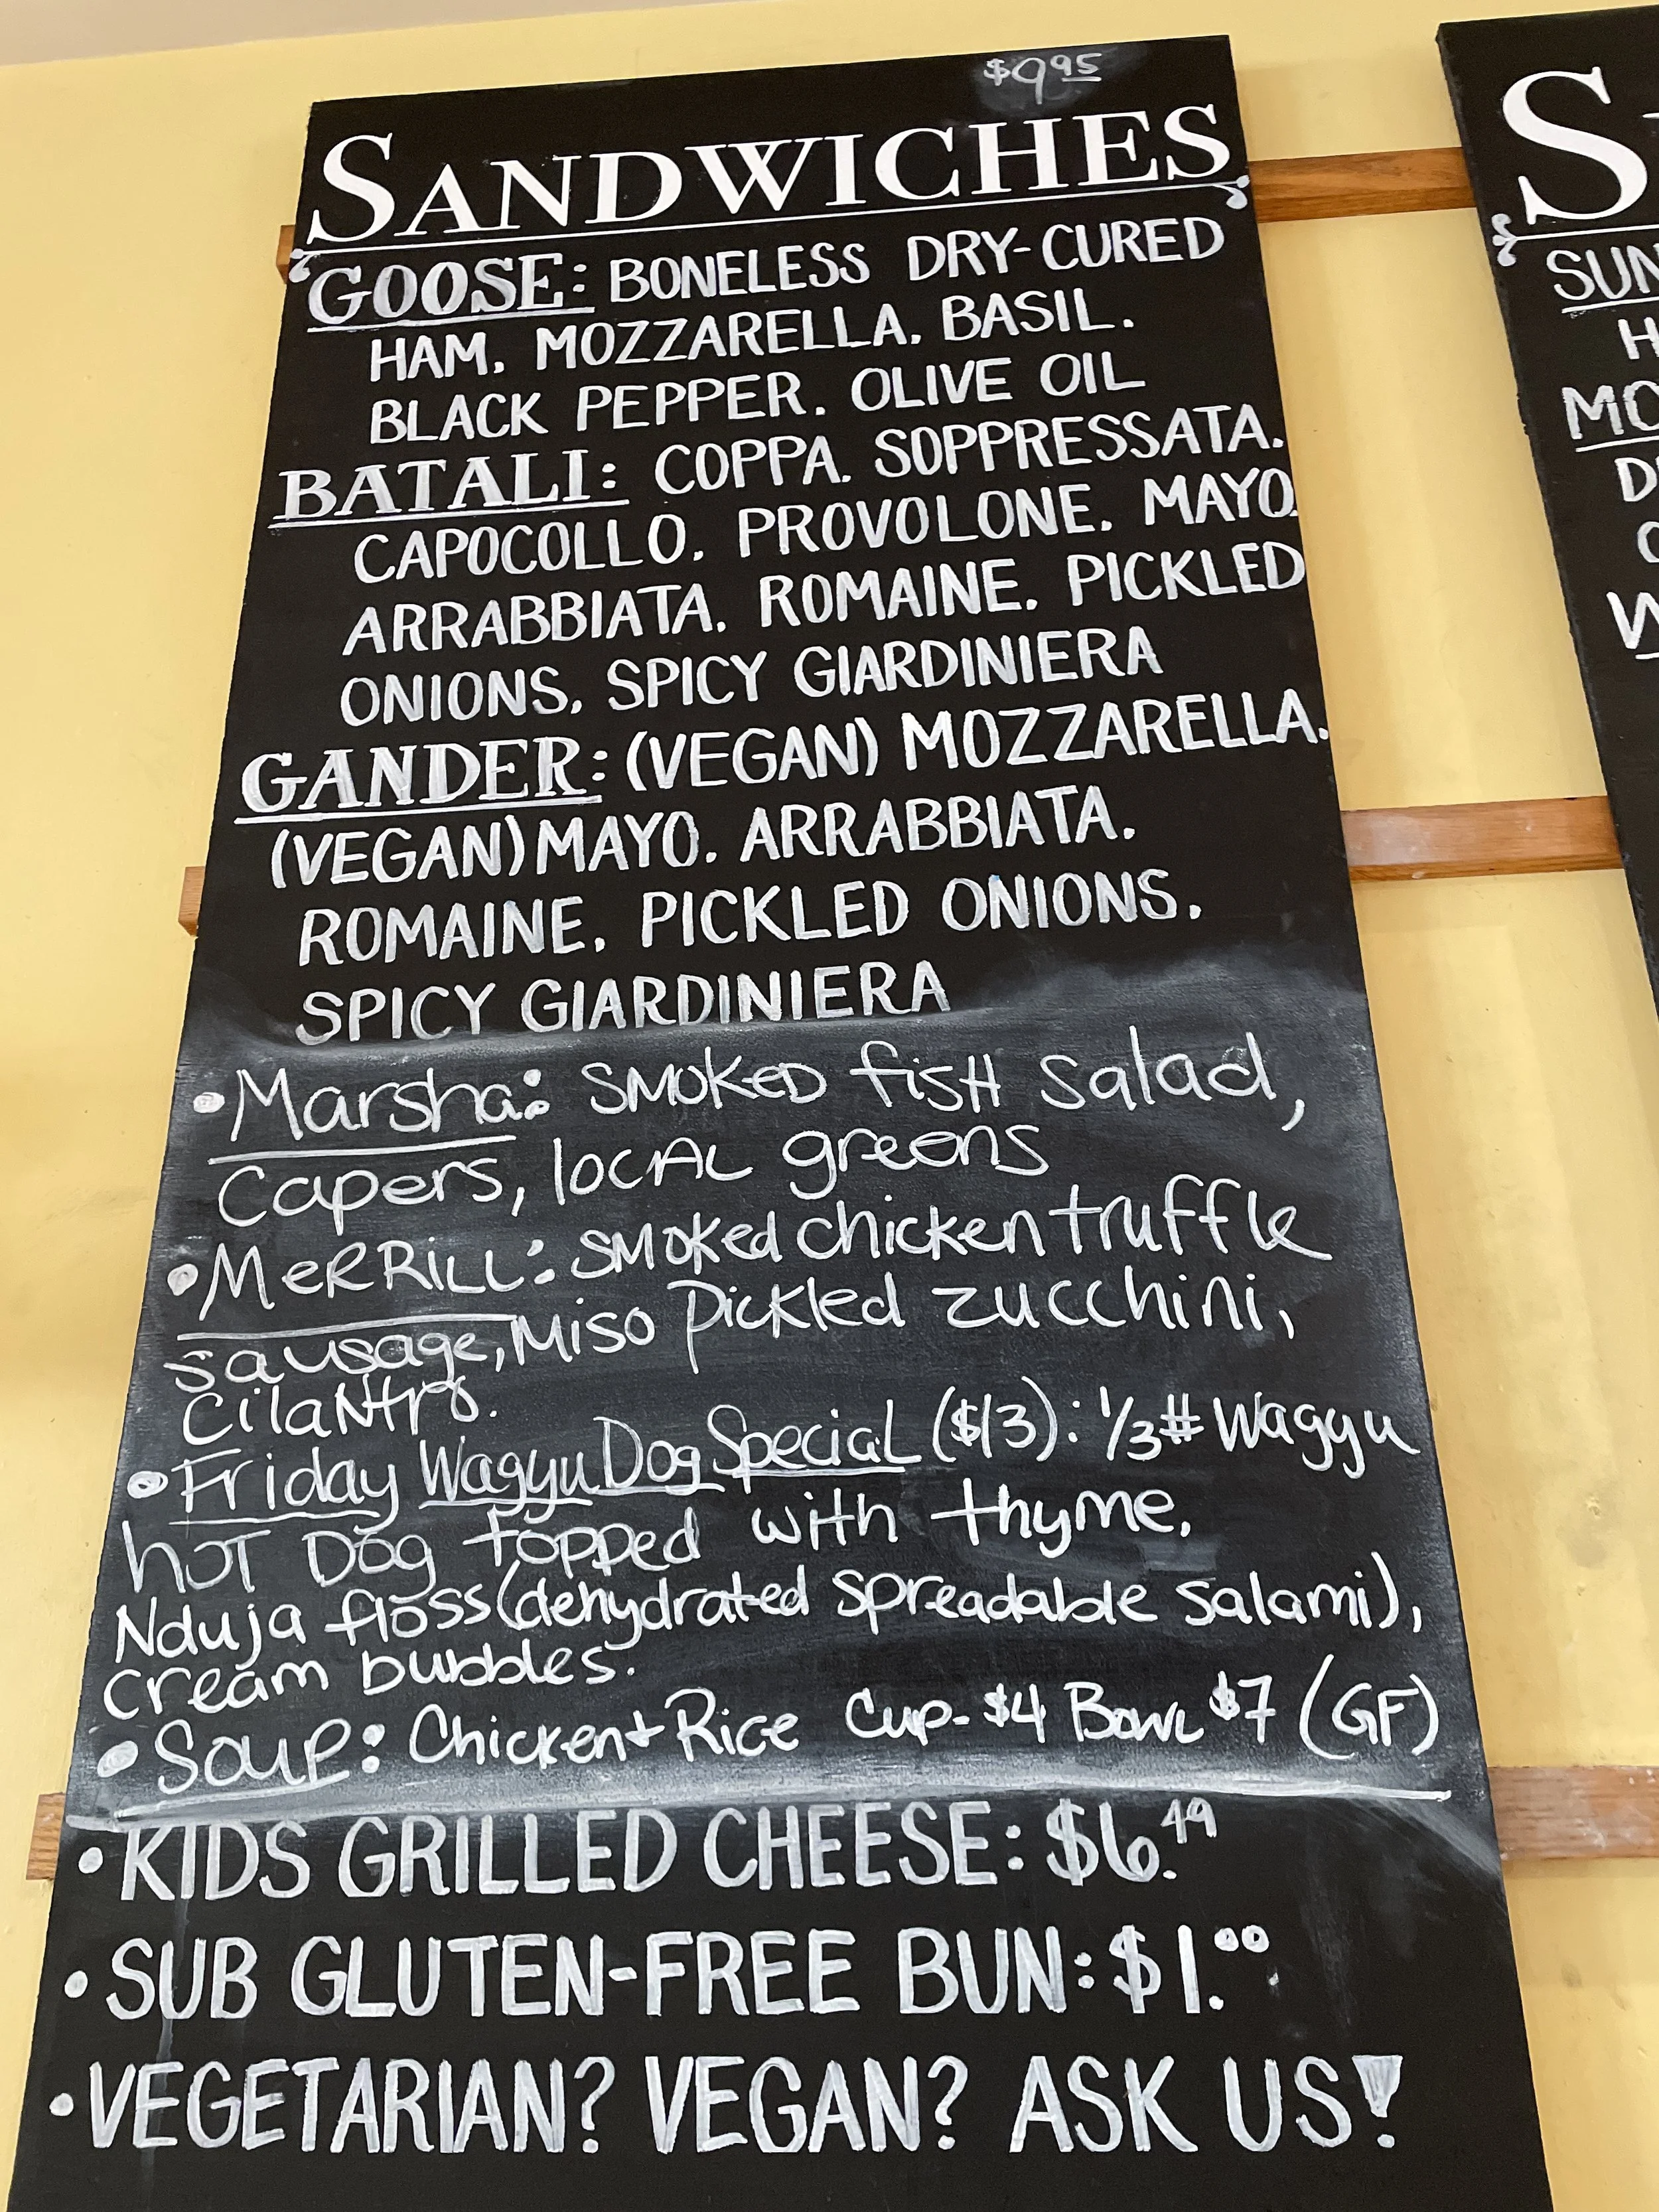 $9.95
SANDWICHES
GOOSE: BONELESS DRY-CURED
HAM. MOZZARELLA. BASIL.
BLACK PEPPER. OLIVE OIL
BATALI: COPPA. SOPPRESSATA.
CAPOCOLLO. PROVOLONE. MAYO.
ARRABBIATA. ROMAINE. PICKLED
ONIONS. SPICY GIARDINIERA
GANDER: (VEGAN) MOZZARELLA.
(VEGAN) MAYO. ARRABBIATA.
ROMAINE. PICKLED ONIONS.
SPICY GIARDINIERA
• Marsha: SMOKED fisH Salad,
Capers, locAL greens
• MeRRiLL: SMOKed chicken truffle
sausage, Miso Pickled zucchini,
CilaNtro.
• Friday Wagyu Dog SpeciaL ($13): 1/3# Wagyu
hoT Dog topped with thyme,
Nduja floss (dehydrated spreadable salami),
cream bubbles.
• Soup: Chicken + Rice Cup- $4 Bowl $7 (GF)
• KIDS GRILLED CHEESE: $6.49
• SUB GLUTEN-FREE BUN: $1.00
• VEGETARIAN? VEGAN? ASK US!
S
SUN
H
MO
D
W